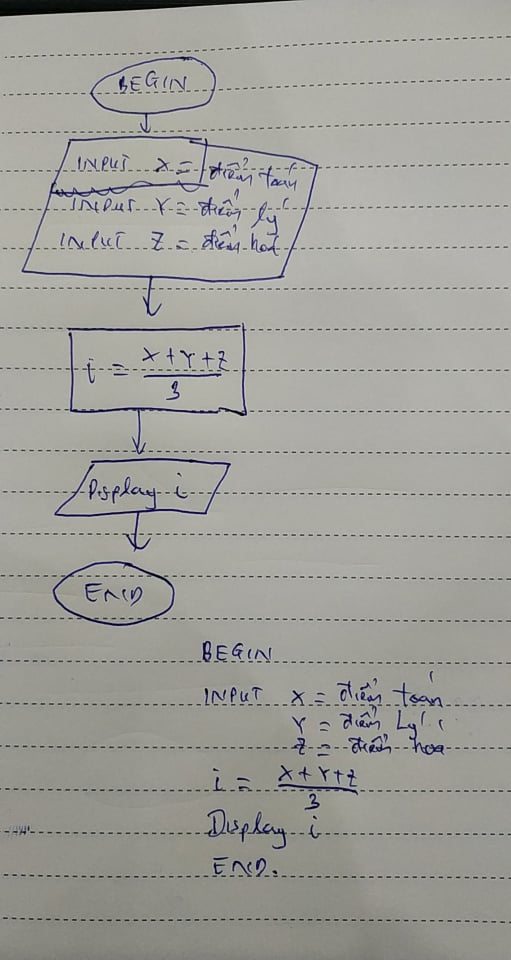 BEGIN
INPUT X = điểm toán
INPUT Y = điểm lý
INPUT Z = điểm hoá
i = X+Y+Z
3
Display i
END
BEGIN
INPUT X = điểm toán
Y = điểm Lý
Z = điểm hoá
i = X+Y+Z
3
Display i
END.